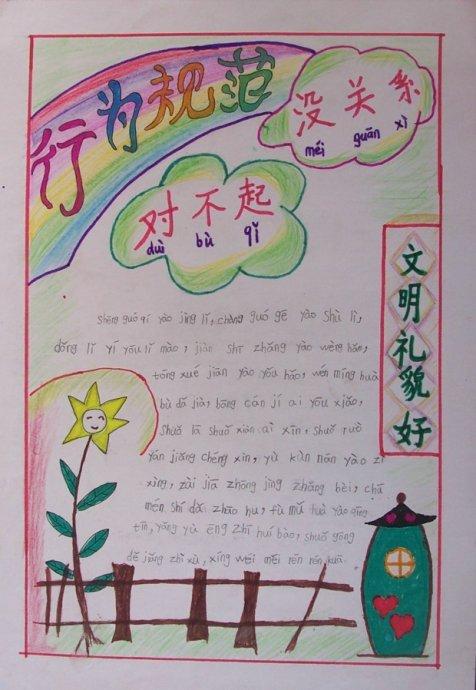 行为规范
没关系
méi guān xì
对不起
duì bù qǐ
文明礼貌好
Shēng guó qí yào jìng lǐ, chàng guó gē yào shù lì,
dǒng lǐ yí yǒu lǐ mào, jiàn shī zhǎng yào wèng hǎn,
tóng xué jiān yào yǒu hǎo, wén míng huà
bù dǎ jià, bāng cán jí ài yòu xiǎo,
yán jiǎng chéng xìn, yù kùn nán yào zì
xìng, zài jiā zhōng jìng zhǎng bèi, chū
mén shí dǎ zhāo hu, fù mǔ huà yào qīng
tīn, yǎng yù ēng zhī huí bào, shuǒ gōng
dé jiǎng zhì xù, xíng wéi měi rén rén kuā.